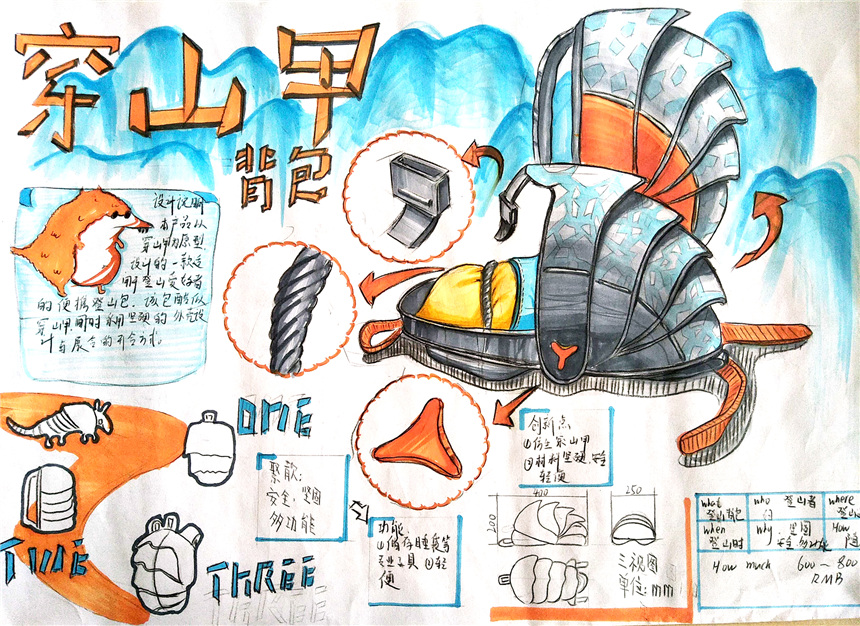 穿山甲
背包
设计说明
本产品从
穿山甲为原型
设计的一款适
用登山爱好者
的便携登山包，该包酷似
穿山甲，同时采用坚硬的外壳设
计与展合的开合方式。
ONE
TWO
THREE
安全、坚固
多功能
创新点
①仿生穿山甲
②材料坚硬、安全
轻便
功能：
①储存睡袋等
②轻
便
400
250
200
三视图
单位：mm
what
登山背包
who 登山者
where
when
登山时
why 坚固
安全 多功能
How
How much 600～800
RMB